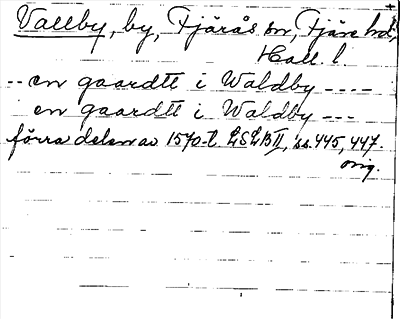 Vallby, by, Fjärås sn, Fjäre hd,
Hall. l.
-- en gaardtt i Waldby ----
en gaardtt i Waldby ---
förra delen av 1570-t. LSLB II, ss. 445, 447.
orig.